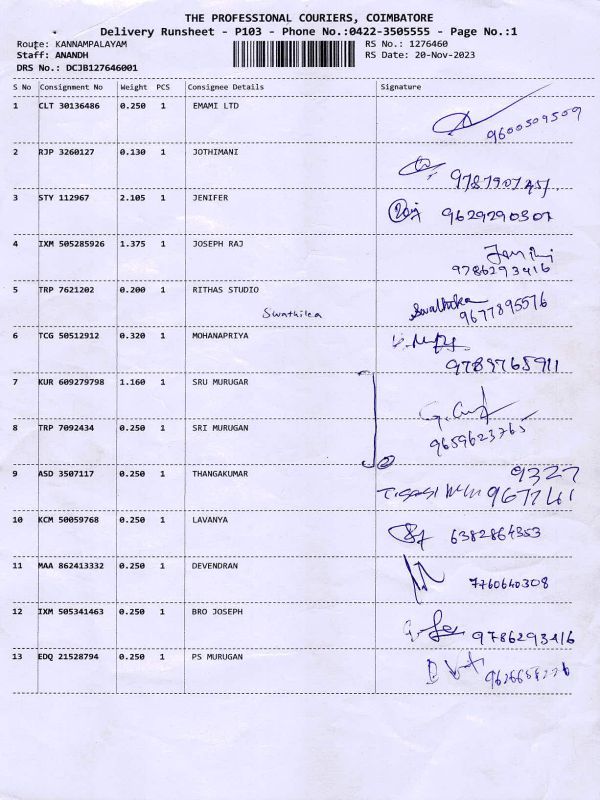 THE PROFESSIONAL COURIERS, COIMBATORE
Delivery Runsheet - P103 - Phone No.:0422-3505555 - Page No.:1
Route: KANNAMPALAYAM RS No.: 1276460
Staff: ANANDH RS Date: 20-Nov-2023
DRS No.: DCJB127646001
S No Consignment No Weight PCS Consignee Details Signature
1 CLT 30136486 0.250 1 EMAMI LTD
9600509509
2 RJP 3260127 0.130 1 JOTHIMANI
3 STY 112967 2.105 1 JENIFER
9629290307
4 IXM 505285926 1.375 1 JOSEPH RAJ
9786293416
5 TRP 7621202 0.200 1 RITHAS STUDIO
Swathika
9677895576
6 TCG 50512912 0.320 1 MOHANAPRIYA
9789765911
7 KUR 609279798 1.160 1 SRU MURUGAR
8 TRP 7092434 0.250 1 SRI MURUGAN
9659623765
9 ASD 3507117 0.250 1 THANGAKUMAR
9327
10 KCM 50059768 0.250 1 LAVANYA
6382864353
11 MAA 862413332 0.250 1 DEVENDRAN
7760640308
12 IXM 505341463 0.250 1 BRO JOSEPH
9786293416
13 EDQ 21528794 0.250 1 PS MURUGAN